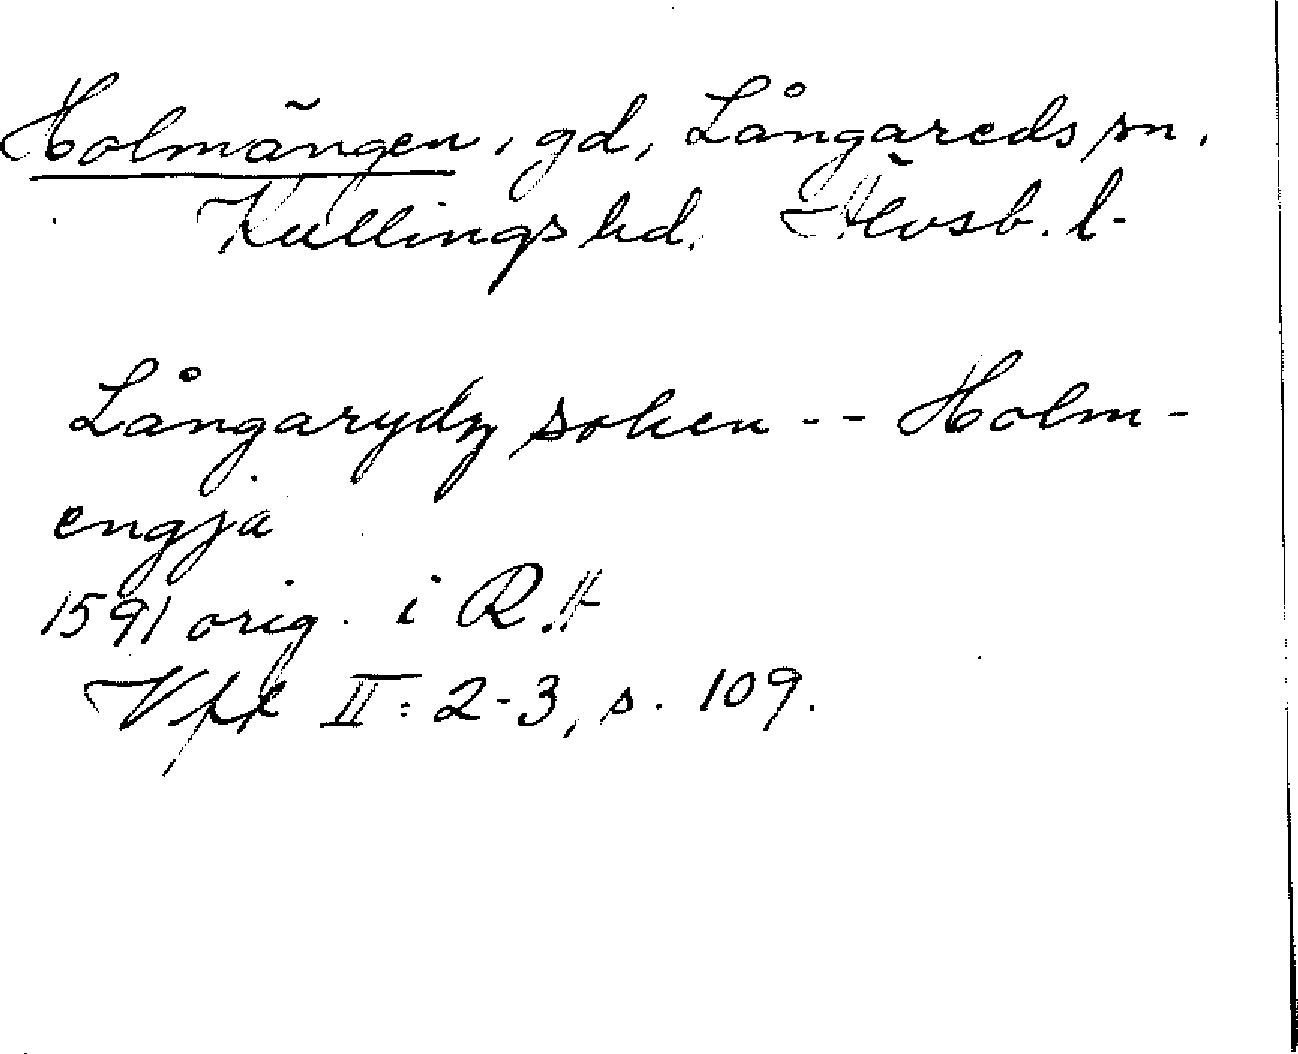 Holmängen, gd, Långareds sn.
Kullings hd. Älvsb. l.
Långarydz soken -- Holm-
engja
1591 orig. i R.A
Vfr II: 2-3, s. 109.